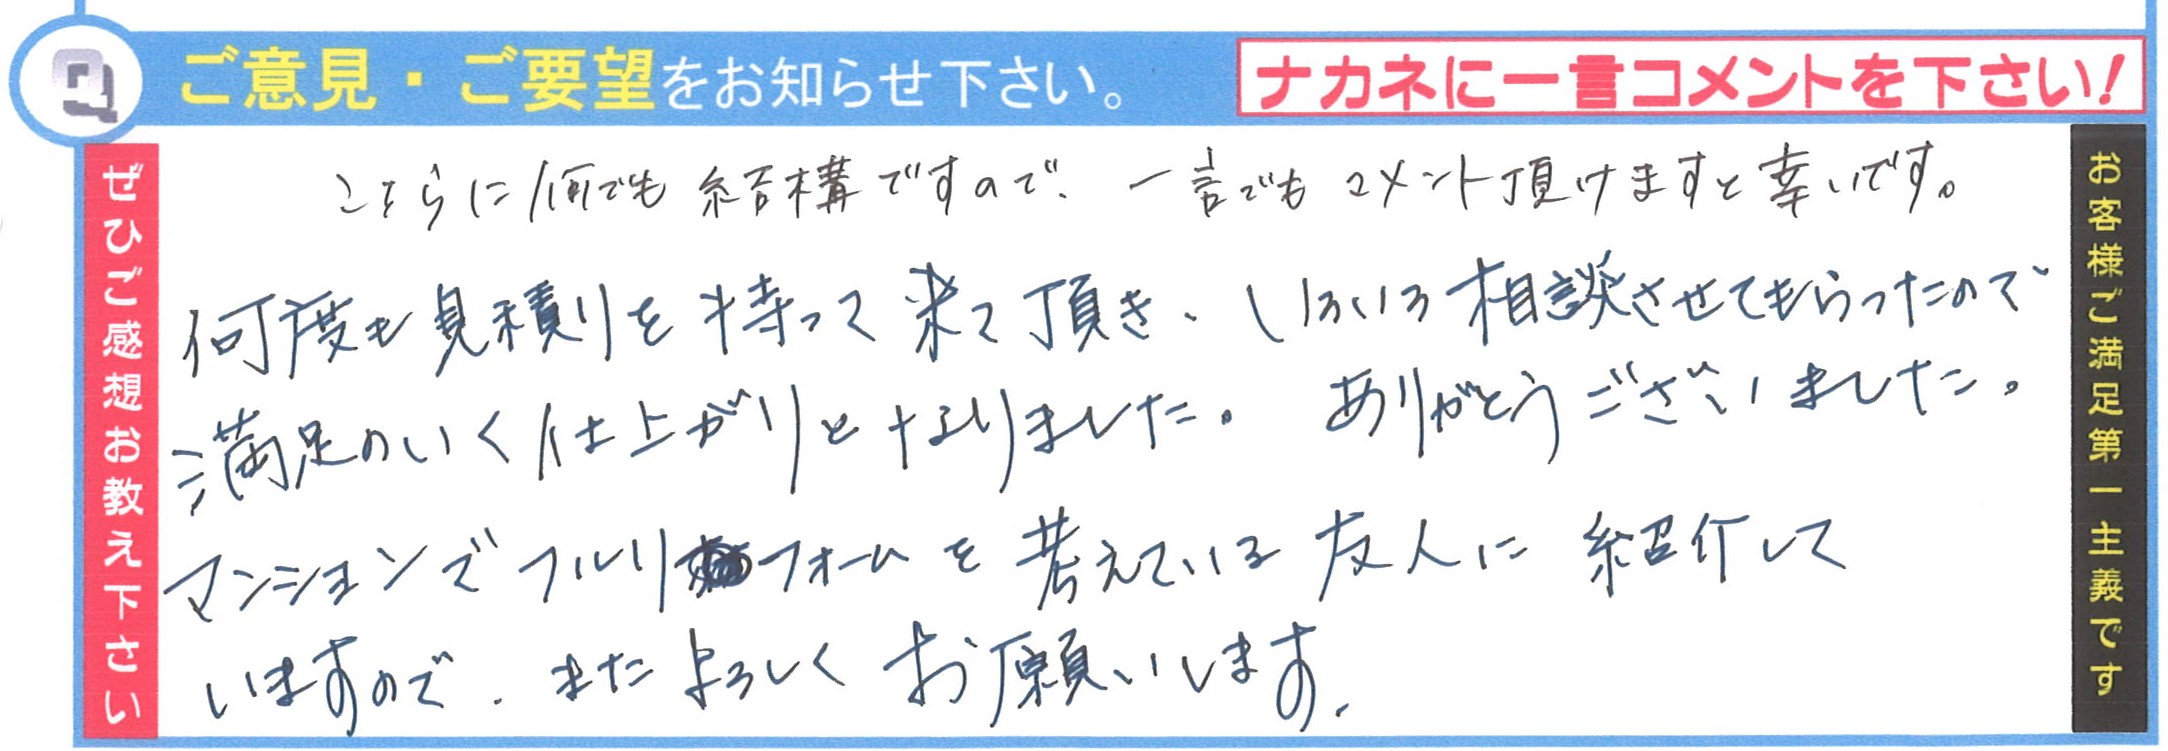 Q ご意見・ご要望をお知らせ下さい。 ナカネに一言コメントを下さい!
ぜひご感想お教え下さい
こちらに何でも結構ですので、一言でもコメント頂けますと幸いです。
何度も見積りを持って来て頂き、いろいろ相談させてもらったので
満足のいく仕上がりとなりました。ありがとうございました。
マンションでフルリフォームを考えている友人に紹介して
いますので、またよろしくお願いします。
お客様ご満足第一主義です